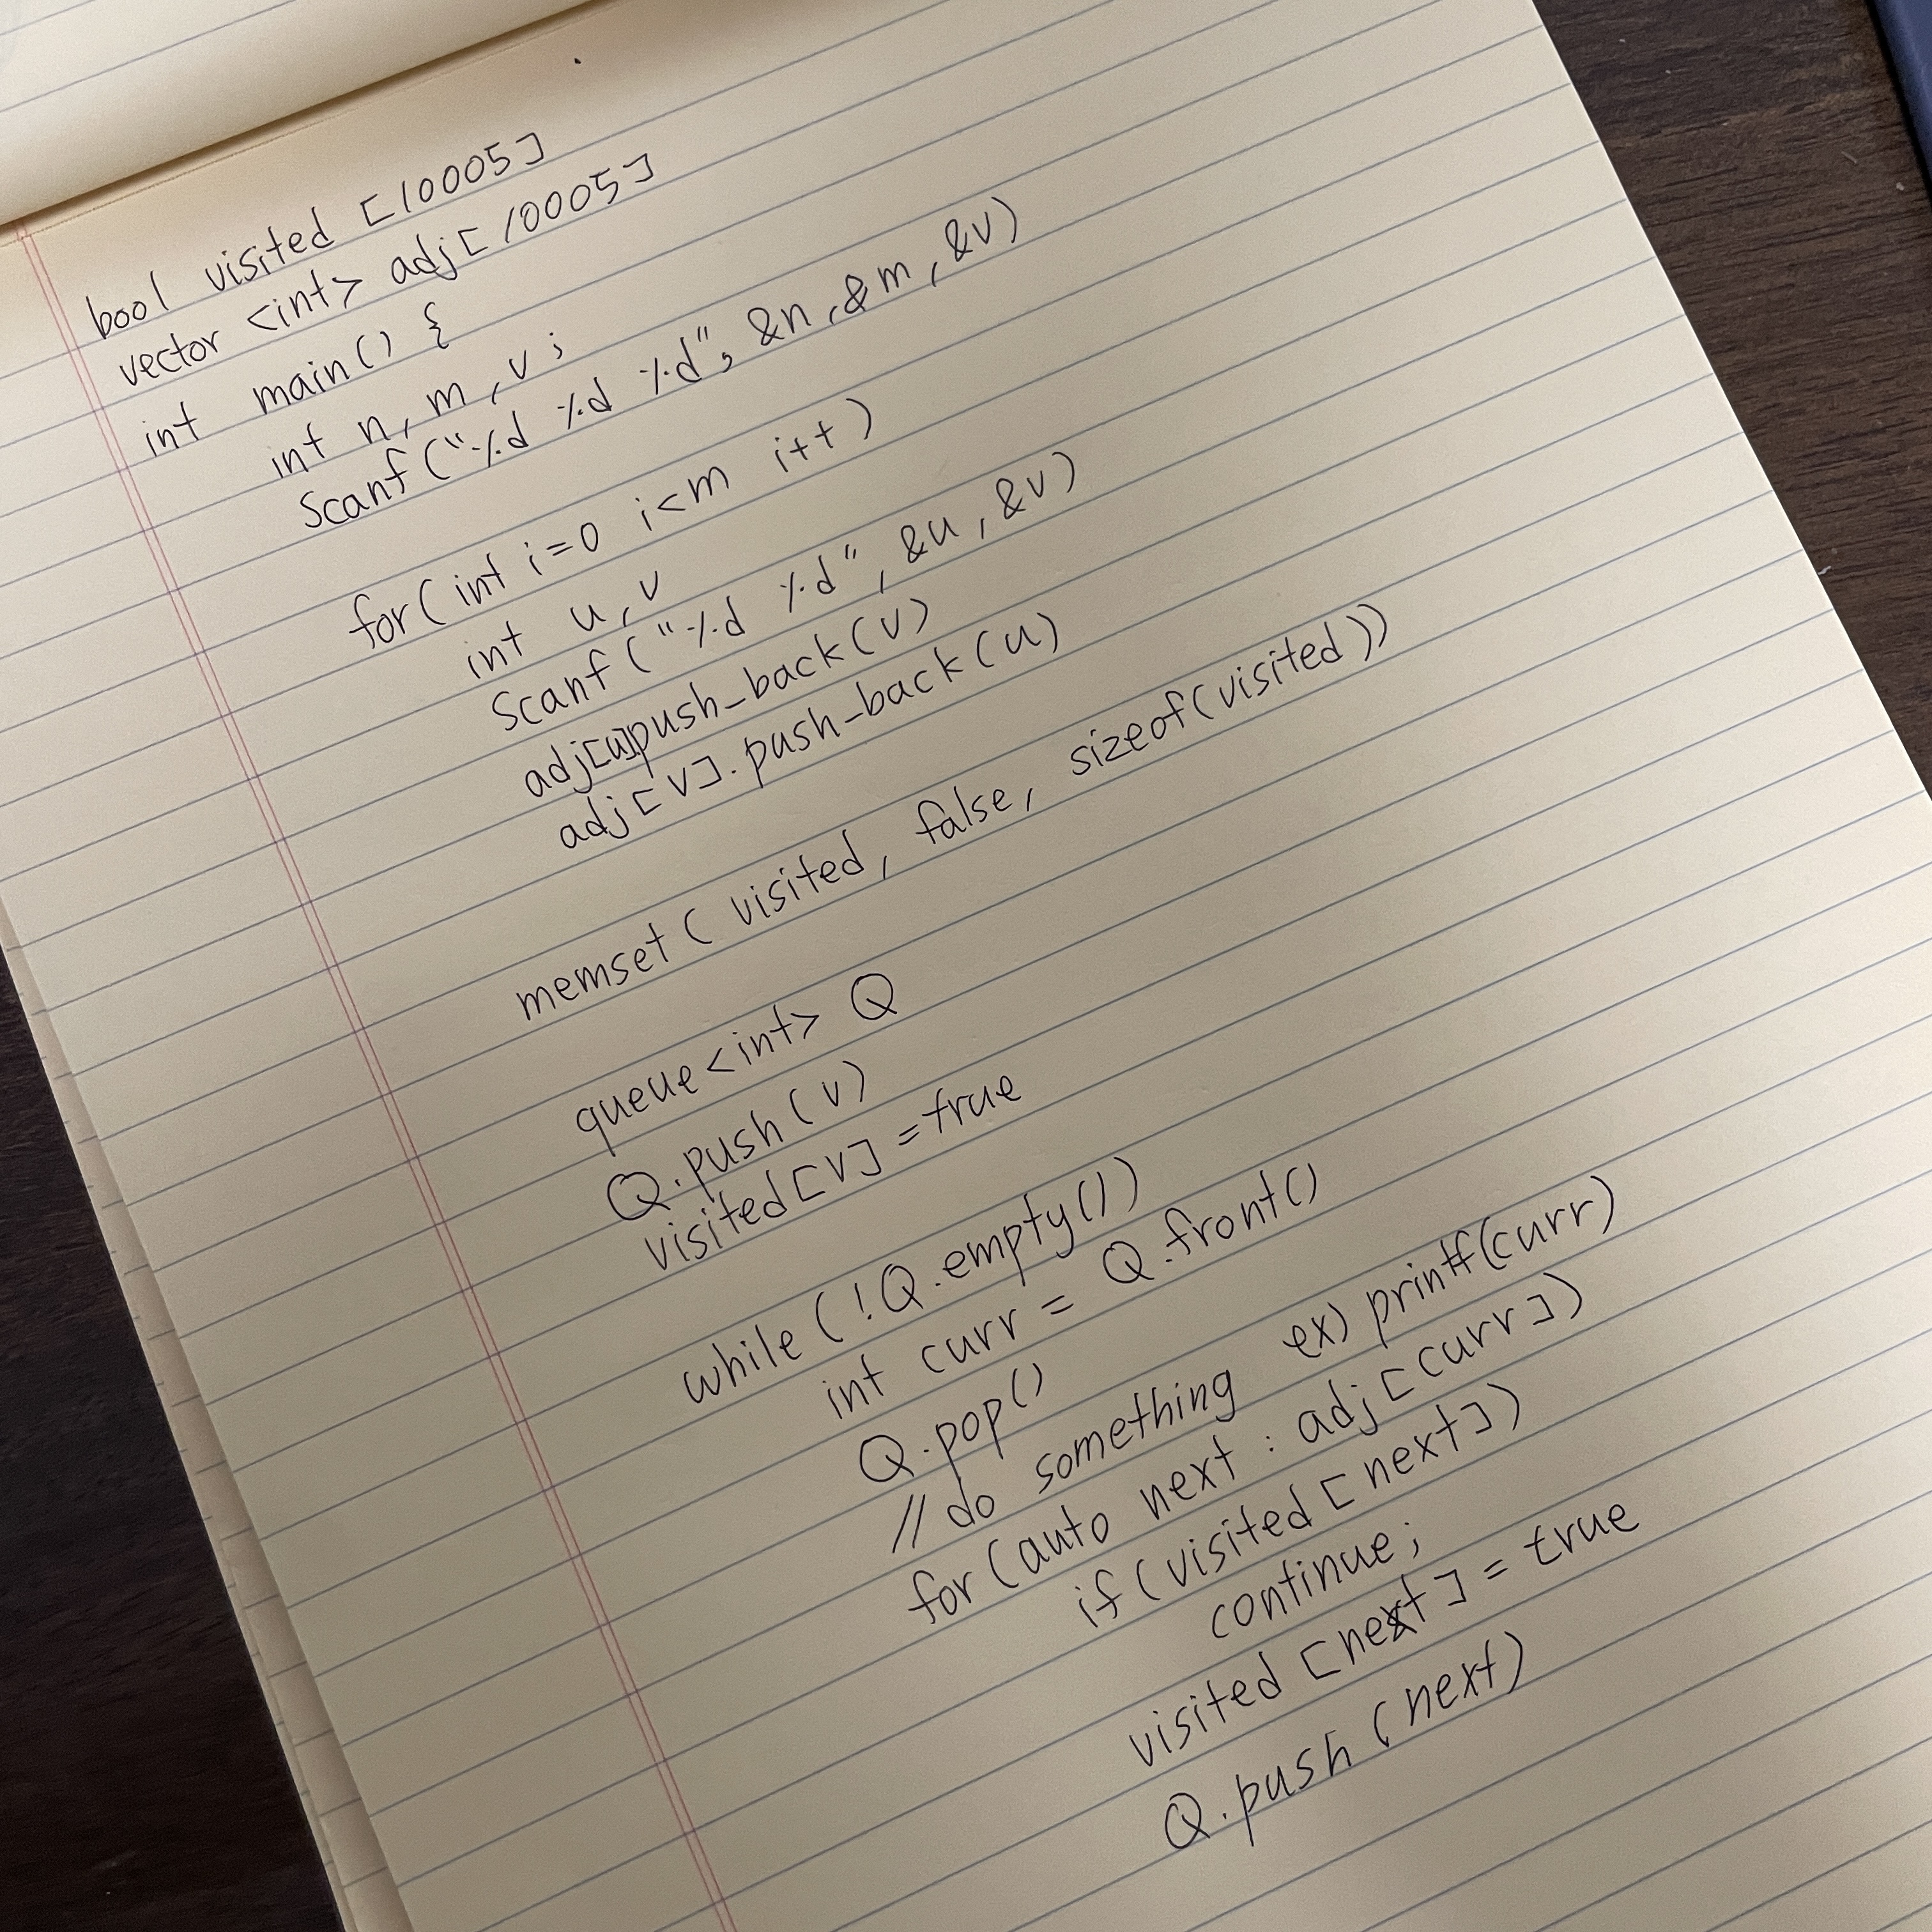 bool visited [10005]
vector <int> adj[10005]
int main() {
int n, m, v;
Scanf("%d %d %d", &n, &m, &v)
for(int i=0 i<m i++)
int u, v
Scanf("%d %d", &u, &v)
adj[u]push_back(v)
adj[v].push_back(u)
memset( visited, false, sizeof(visited))
queue<int> Q
Q.push(v)
visited[v]=true
while(!Q.empty())
int curr = Q.front()
Q.pop()
//do something ex) printf(curr)
for(auto next : adj[curr])
if(visited[next])
continue;
visited [next] = true
Q.push(next)